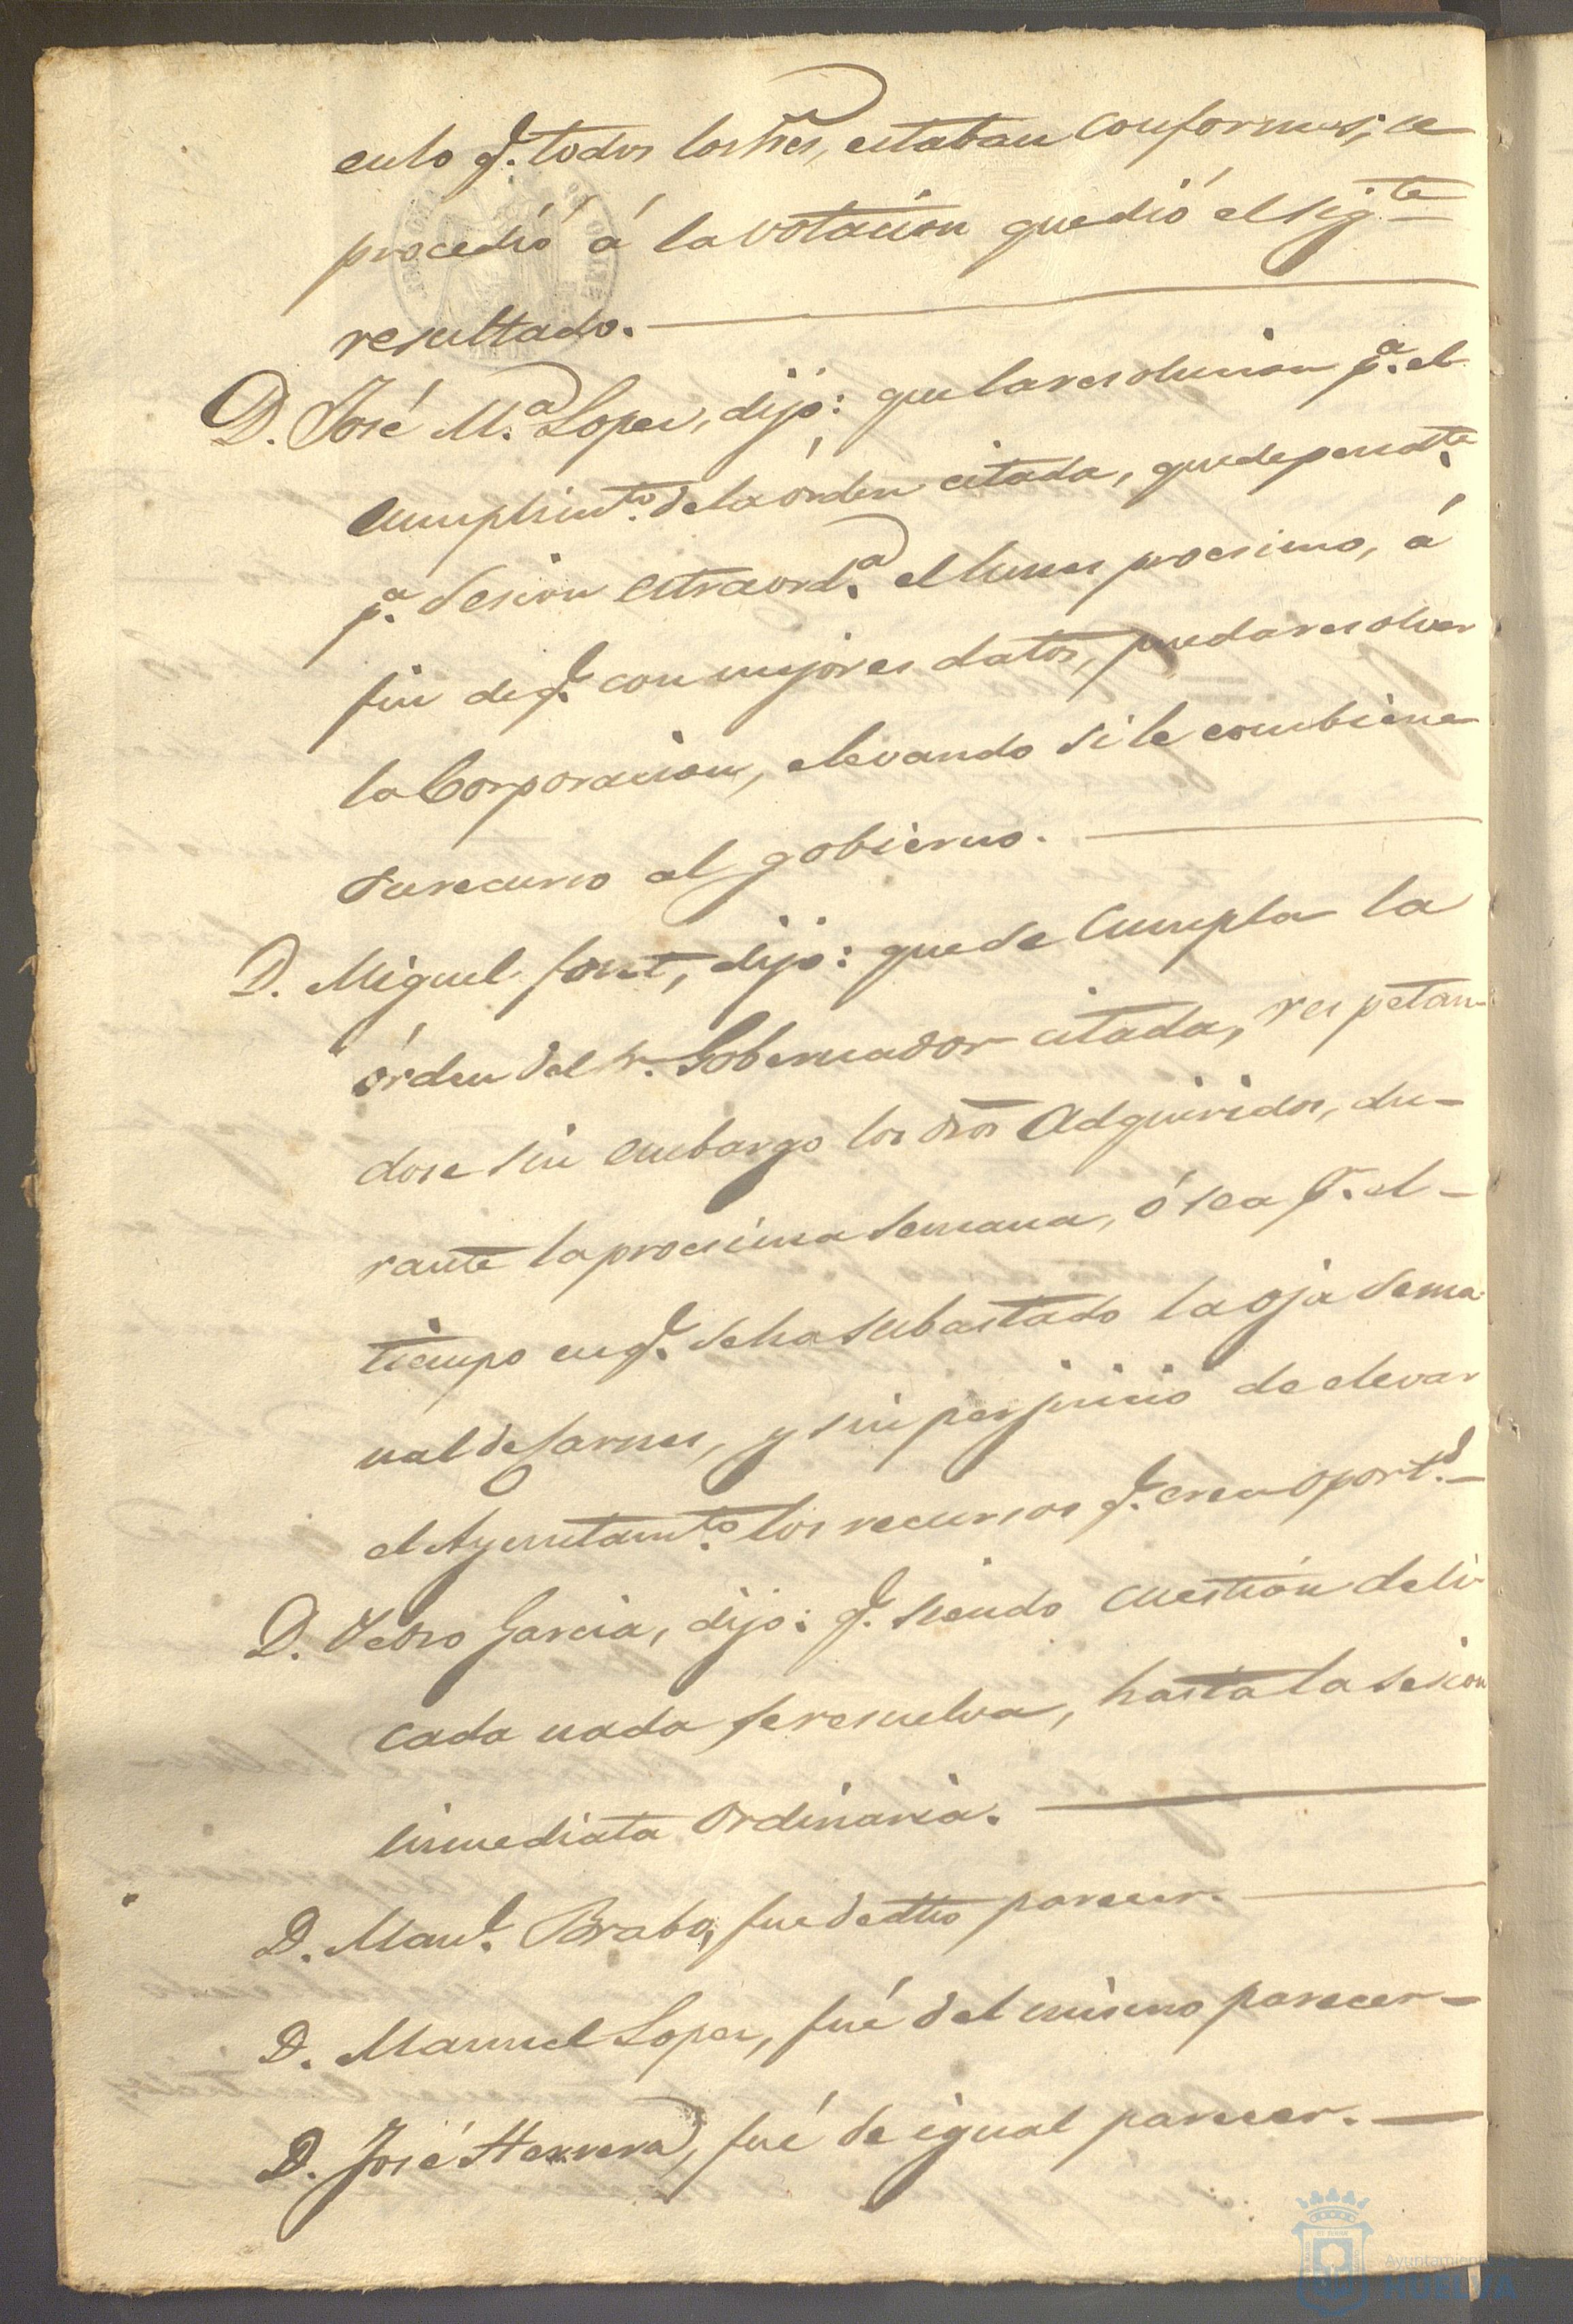 en lo q.e todos los Sres, estaban conformes; se
procedió á la votacion que dió el sig.te
resultado.
D. José M.a Lopez, dijo: que la resolucion p.a el
cumplim.to de la órden citada, quede pend.te
p.a sesion estraord.a el lunes procsimo, á
fin de q.e con mejores datos, pueda resolver
la Corporacion, elevando si le combiene
su recurso al gobierno.
D. Miguel Font, dijo: que se cumpla la
órden del Sr. Gobernador citada, respetan-
dose sin embargo los dros adquiridos, du-
rante la procsima semana, ó sea p.r el
tiempo en q.e se ha subastado la oja sema-
nal de Carnes, y sin perjuicio de elevar
el Ayuntam.to los recursos q.e crea oport.s
D. Pedro Garcia, dijo: q.e siendo cuestión deli-
cada nada se resuelva, hasta la sesion
inmediata ordinaria.
D. Man.l Brabo, fue de dho parecer.
D. Manuel Lopez, fué del mismo parecer
D. José Herrera, fué de igual parecer.
Ayuntamien
HUELVA